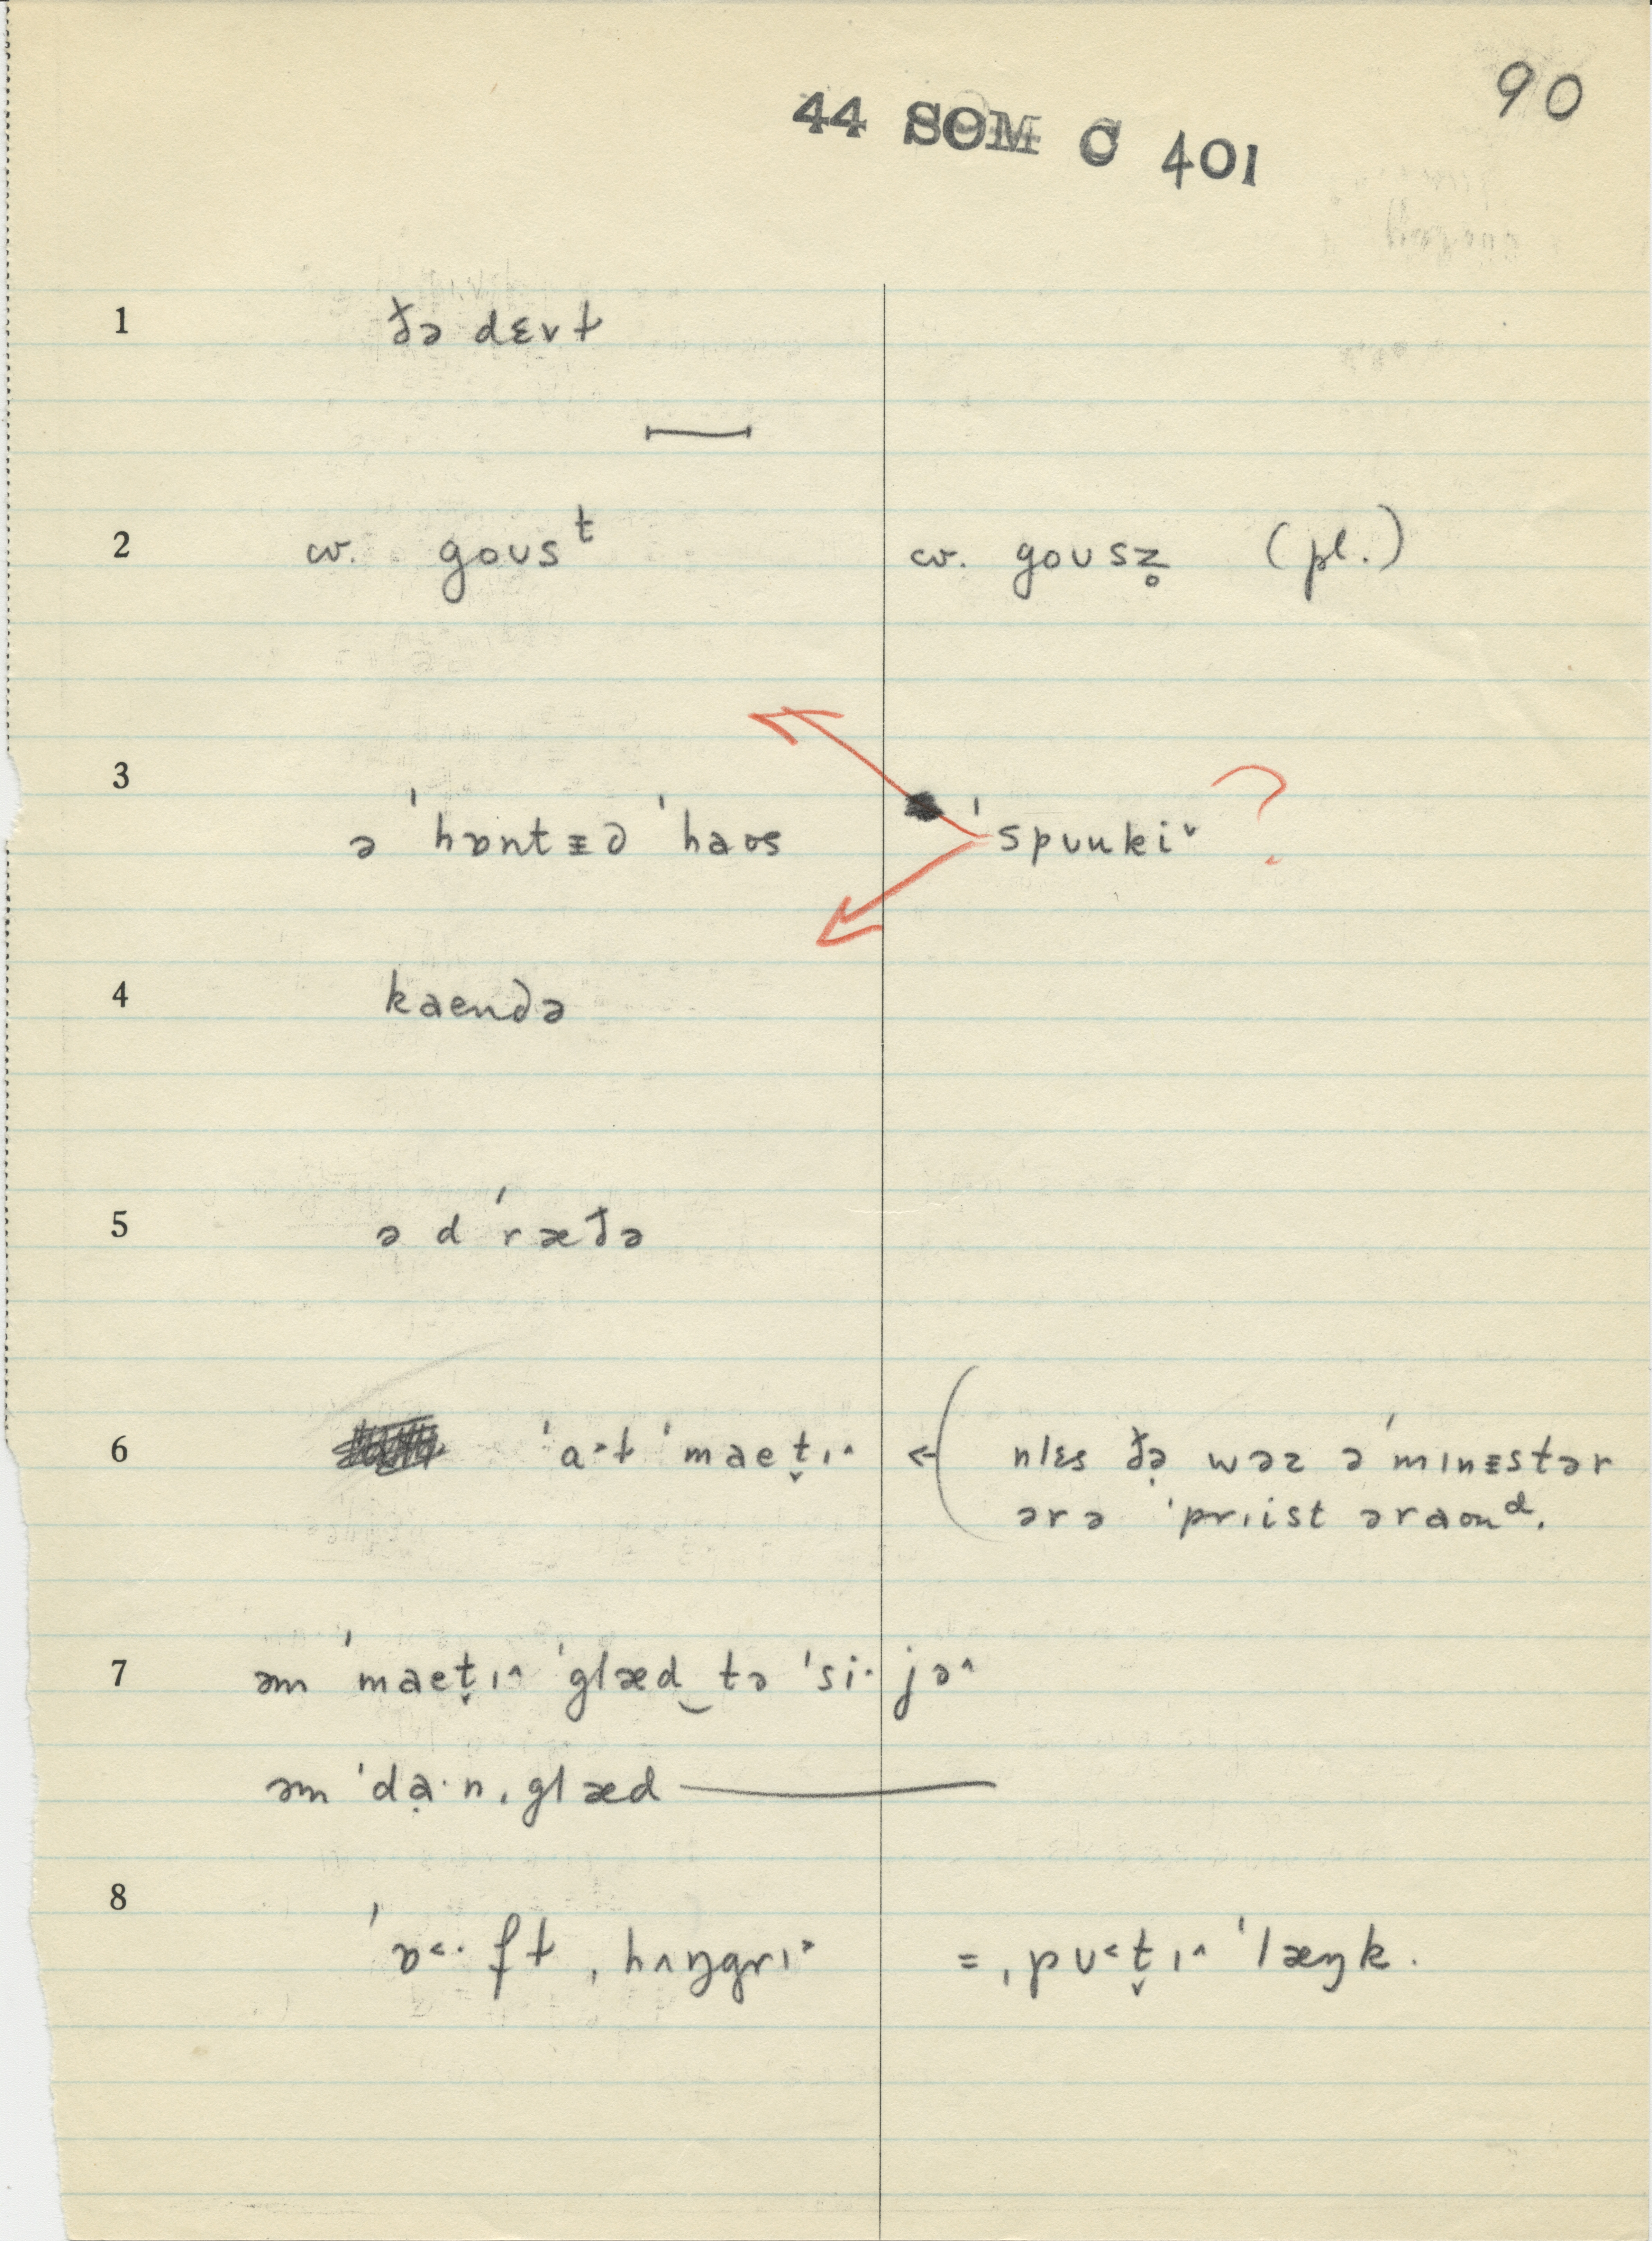 90
44 SOM C 401
1 ðə dɛvɫ
2 cv. goʊsᵗ cv. goʊsz̥ (pl.)
3 ə ˈhɒntᵻd ˈhaʊs ˈspʊukiˇ ?
4 kaendə
5 ə dˈræðə
6 ˈa·ɫ ˈmaet̬ɪ^ ← ( nlɛs ðə̣ wəz ə ˈmɪnᵻstər
ərə ˈprɪist əraʊnᵈ.
7 əm ˈmaet̬ɪ^ ˈglæd‿tə ˈsi·jə^
əm ˈdạ·n ˌglæd ———
8 ˈɒ<·fɫ ˌhʌŋgrɪ^ = ˌpʊ<t̬ɪ^ ˈlæŋk.